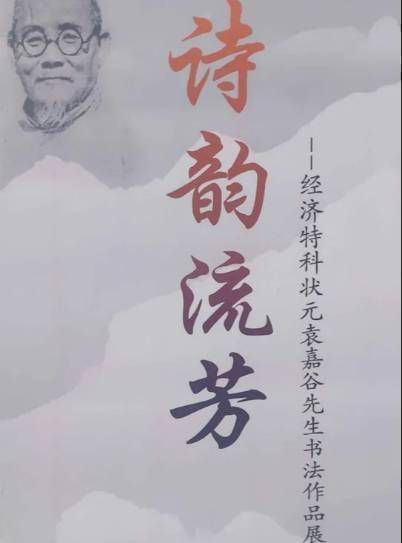 诗韵流芳
--经济特科状元袁嘉谷先生书法作品展